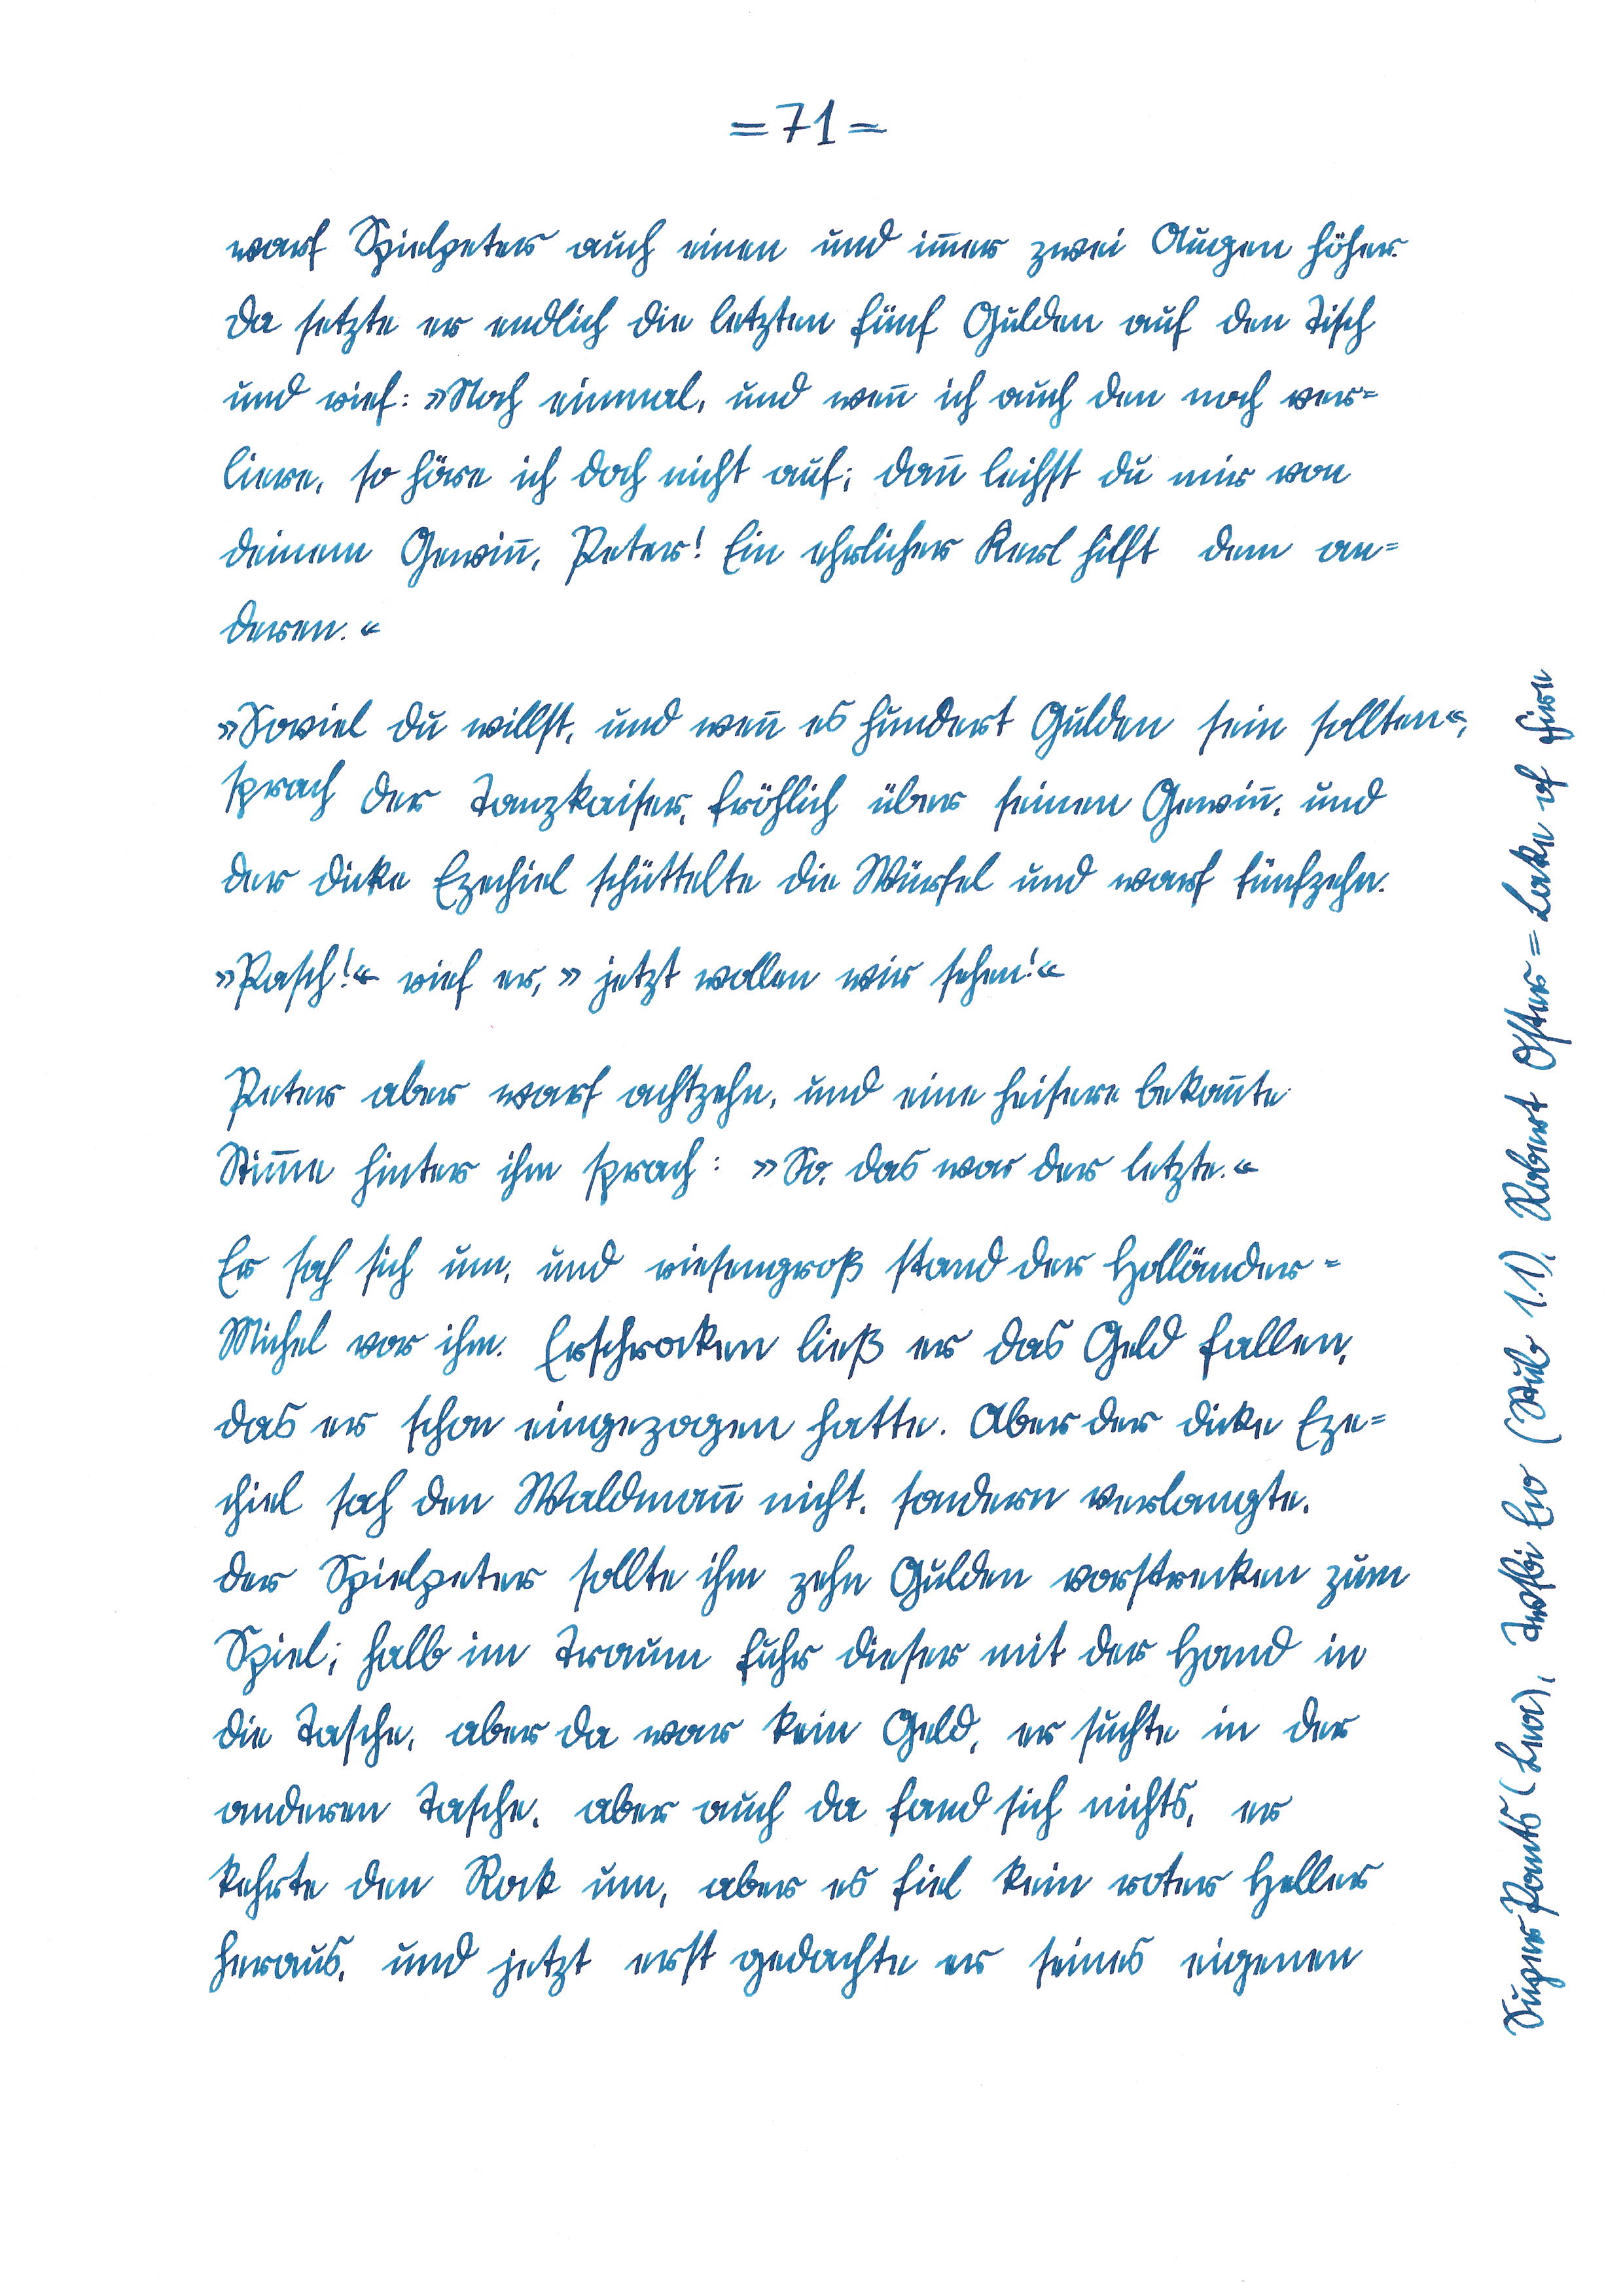 =71=
warf Spielpeter auch einen und im̅er zwei Augen höher.
Da setzte er endlich die letzten fünf Gulden auf den Tisch
und rief: »Noch einmal, und wen̅ ich auch den noch ver=
liere, so höre ich doch nicht auf; dan̅ leihst du mir von
deinem Gewin̅, Peter! Ein ehrlicher Kerl hilft dem an=
deren.«
»Soviel du willst, und wen̅ es hundert Gulden sein sollten«,
sprach der Tanzkaiser, fröhlich über seinen Gewin̅, und
der dicke Ezechiel schüttelte die Würfel und warf fünfzehn.
»Pasch!« rief er, »jetzt wollen wir sehen!«
Peter aber warf achtzehn, und eine heisere bekan̅te
Stim̅e hinter ihm sprach: »So, das war der letzte.«
Er sah sich um, und riesengroß stand der Holländer=
Michel vor ihm. Erschrocken ließ er das Geld fallen,
das er schon eingezogen hatte. Aber der dicke Eze=
chiel sah den Waldman̅ nicht, sondern verlangte,
der Spielpeter sollte ihm zehn Gulden vorstrecken zum
Spiel; halb im Traum fuhr dieser mit der Hand in
die Tasche, aber da war kein Geld, er suchte in der
anderen Tasche, aber auch da fand sich nichts, er
kehrte den Rock um, aber es fiel kein roter Heller
heraus, und jetzt erst gedachte er seines eigenen
Super5Pants (Lea), Twsbi Eco (Stub 1.1), Robert Oster = Lake of Fire